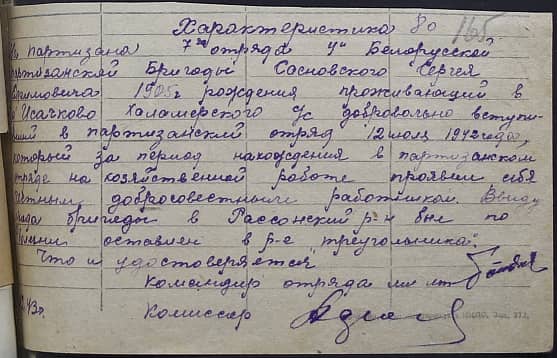 Характеристика 80
165
партизана 7го отряда 4й Белорусской
партизанской Бригады Сосновского Сергея
1905г рождения проживающий в
Исачково Халамерского с/с добровольно вступи-
в партизанский отряд 12 июля 1942 года,
который за период нахождения в партизанском
отряде на хозяйственной работе проявил себя
честным добросовестным работником. Ввиду
бригады в Россонский р-н был по
оставлен в р-е "треугольника".
Что и удостоверяется
Командир отряда
43г. Комиссар